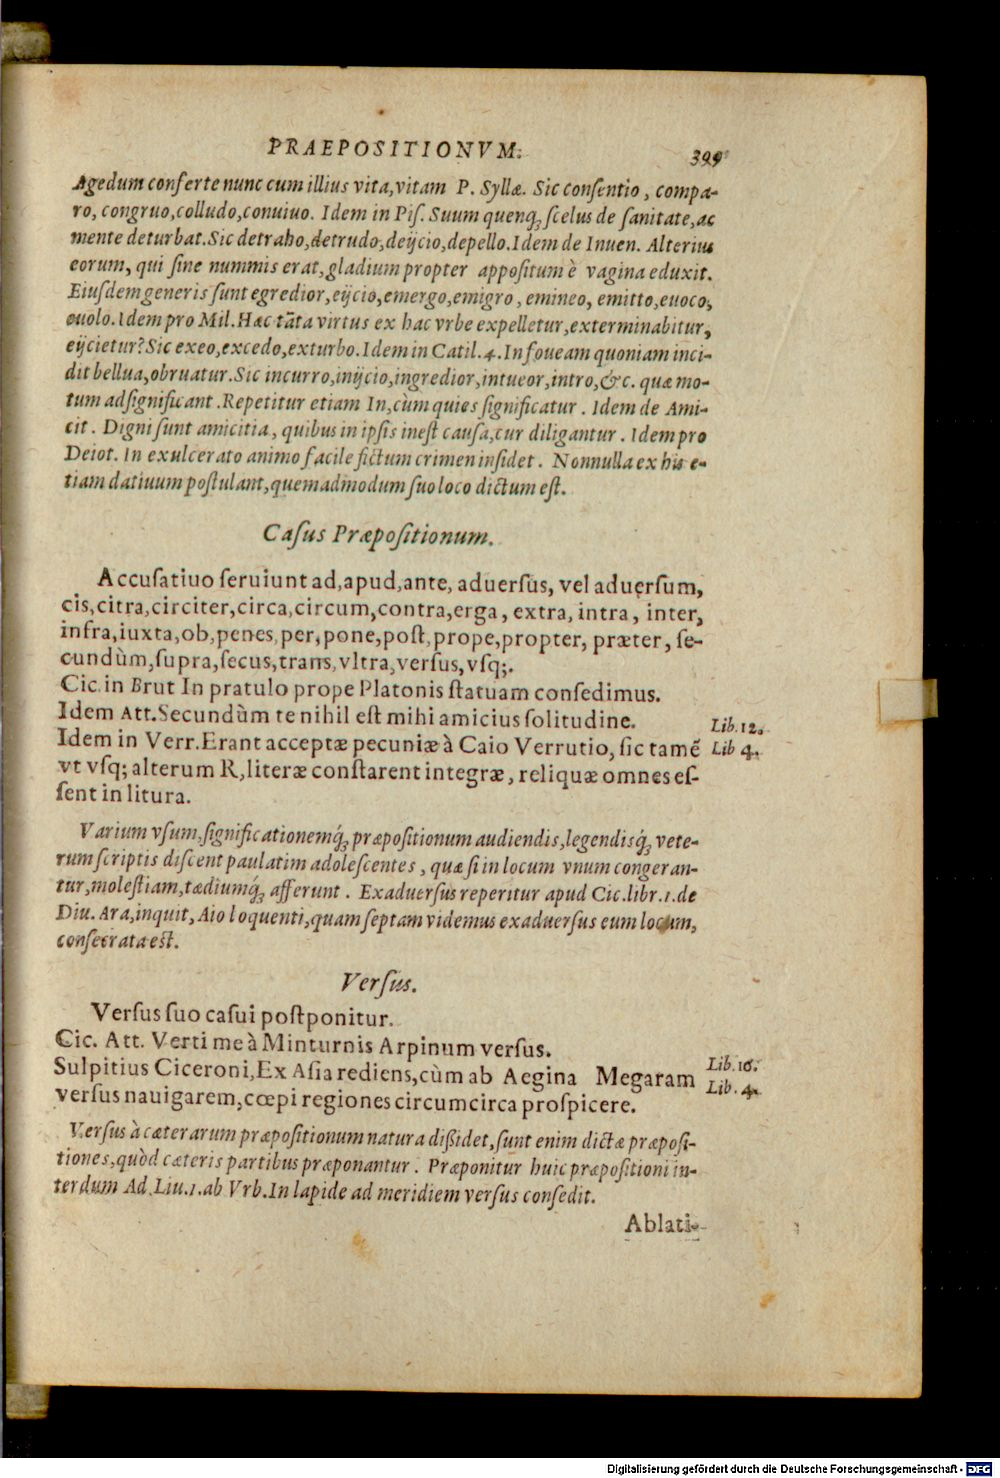 PRAEPOSITIONVM. 399
Agedum conferte nunc cum illius vita, vitam P. Syllæ. Sic consentio, compa-
ro, congruo, colludo, conuiuo. Idem in Pis. Suum quenq; scelus de sanitate, ac
mente deturbat. Sic detraho, detrudo, deijcio, depello. Idem de Inuen. Alterius
eorum, qui sine nummis erat, gladium propter appositum è vagina eduxit.
Eiusdem generis sunt egredior, eijcio, emergo, emigro, emineo, emitto, euoco,
euolo. Idem pro Mil. Hæc tāta virtus ex hac vrbe expelletur, exterminabitur,
eijcietur? Sic exeo, excedo, exturbo. Idem in Catil. 4. In foueam quoniam inci-
dit bellua, obruatur. Sic incurro, inijcio, ingredior, intueor, intro, &c. quæ mo-
tum adsignificant. Repetitur etiam In, cùm quies significatur. Idem de Ami-
cit. Digni sunt amicitia, quibus in ipsis inest causa, cur diligantur. Idem pro
Deiot. In exulcerato animo facile fictum crimen insidet. Nonnulla ex his e-
tiam datiuum postulant, quemadmodum suo loco dictum est.
Casus Præpositionum.
Accusatiuo seruiunt ad, apud, ante, aduersus, vel aduersum,
cis, citra, circiter, circa, circum, contra, erga, extra, intra, inter,
infra, iuxta, ob, penes, per, pone, post, prope, propter, præter, se-
cundùm, supra, secus, trans, vltra, versus, vsq;.
Cic. in Brut In pratulo prope Platonis statuam consedimus.
Idem Att. Secundùm te nihil est mihi amicius solitudine. Lib. 12.
Idem in Verr. Erant acceptæ pecuniæ à Caio Verrutio, sic tamē Lib 4.
vt vsq; alterum R, literæ constarent integræ, reliquæ omnes es-
sent in litura.
Varium vsum, significationemq́; præpositionum audiendis, legendisq́; vete-
rum scriptis discent paulatim adolescentes, quæ si in locum vnum congeran-
tur, molestiam, tædiumq́; afferunt. Exaduersus reperitur apud Cic. libr. 1. de
Diu. Ara, inquit, Aio loquenti, quam septam videmus exaduersus eum locum,
consecrata est.
Versus.
Versus suo casui postponitur.
Cic. Att. Verti me à Minturnis Arpinum versus. Lib. 16.
Sulpitius Ciceroni, Ex Asia rediens, cùm ab Aegina Megaram Lib. 4.
versus nauigarem, cœpi regiones circumcirca prospicere.
Versus à cæterarum præpositionum natura dißidet, sunt enim dictæ præposi-
tiones, quòd cæteris partibus præponantur. Præponitur huic præpositioni in-
terdum Ad. Liu. 1. ab Vrb. In lapide ad meridiem versus consedit.
Ablati-
Digitalisierung gefördert durch die Deutsche Forschungsgemeinschaft - DFG